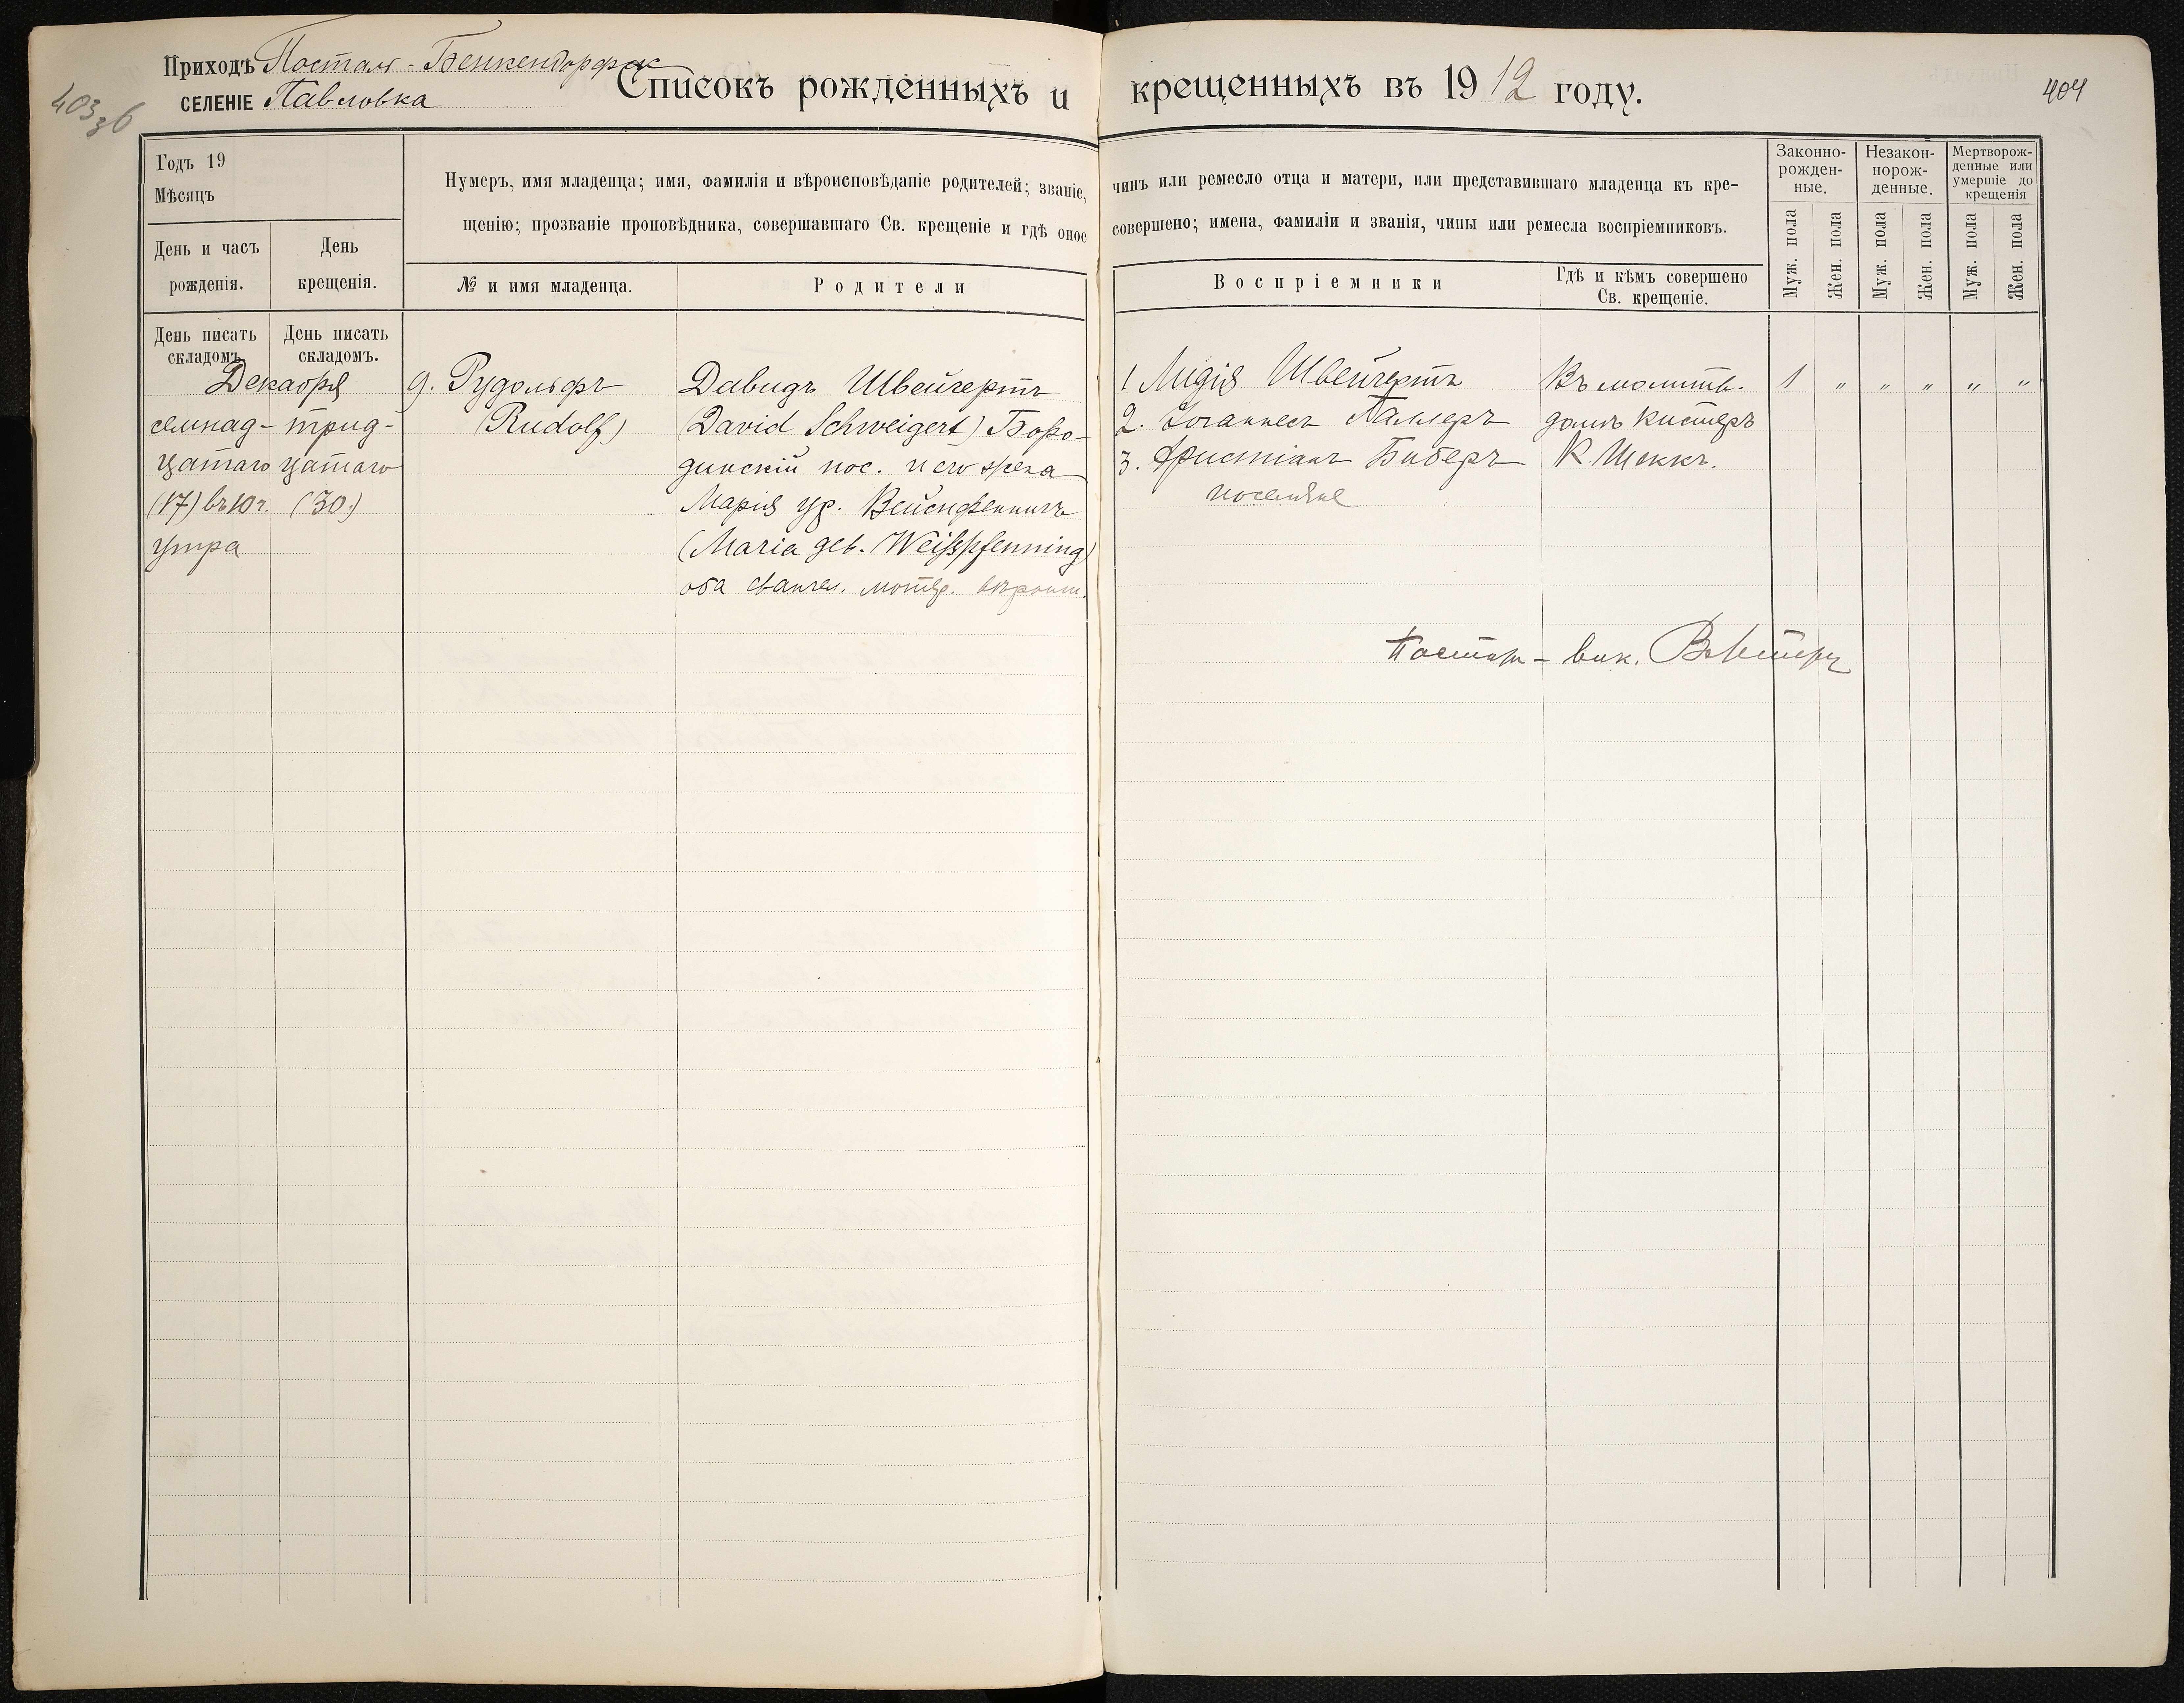 Приходъ Посталь-Бенкендорфск
селеніе Павловка
Списокъ рожденныхъ и крещенныхъ въ 1912 году.
403
зб
404
Годъ 19
Мѣсяцъ
День и часъ
рожденія.
День
крещенія.
Нумеръ, имя младенца; имя, фамилія и вѣроисповѣданіе родителей; званіе, чинъ или ремесло отца и матери, или представившаго младенца къ кре-
щенію; прозваніе проповѣдника, совершавшаго Св. крещеніе и гдѣ оное совершено; имена, фамиліи и званія, чины или ремесла воспріемниковъ.
№ и имя младенца.
Родители
Воспріемники
Гдѣ и кѣмъ совершено
Св. крещеніе.
Законно-
рожден-
ные.
Незакон-
норож-
денные.
Мертворож-
денные или
умершіе до
крещенія
Муж. пола
Жен. пола
Муж. пола
Жен. пола
Муж. пола
Жен. пола
День писать
складомъ.
День писать
складомъ.
Декабря
семнад-
цатаго
(17) въ 10 ч.
утра
трид-
цатаго
(30.)
9. Рудольфъ
(Rudolf)
Давидъ Швейгертъ
(David Schweigert) Боро-
динскій пос. и его жена
Марія ур. Вейспфеннигъ
(Maria geb. Weißpfenning)
оба евангел. лютер. вѣроисп.
1 Лидія Швейгертъ
2. Іоганнесъ
3. Христіанъ Биберъ
поселяне
Въ молитв.
домѣ кистеръ
К. Шеккъ.
1 " " " " "
Пасторъ-вик.